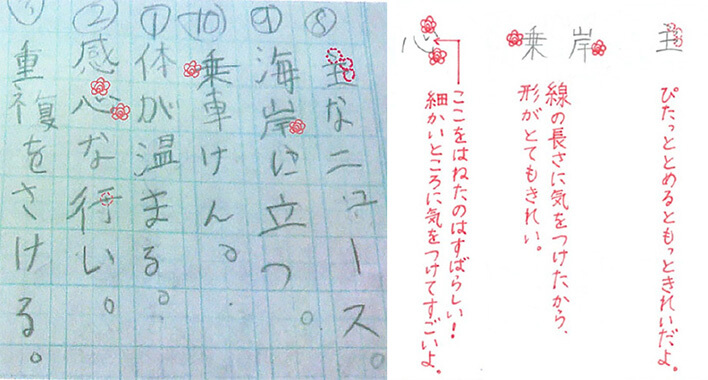 ⑧ 主なニュース。
⑨ 海岸に立つ。
⑩ 乗車けん。
① 体が温まる。
② 感心な行い。
③ 重複をさける。
主
ぴたっととめるともっときれいだよ。
岸
乗
線の長さに気をつけたから、
形がとてもきれい。
心
ここをはねたのはすばらしい!
細かいところに気をつけてすごいよ。